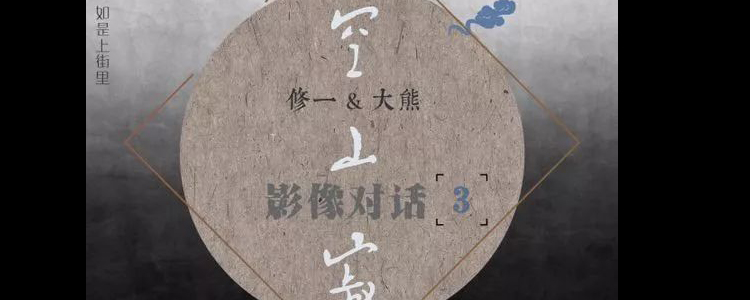 如是上街里
空
修一 & 大熊
山
影像对话 3